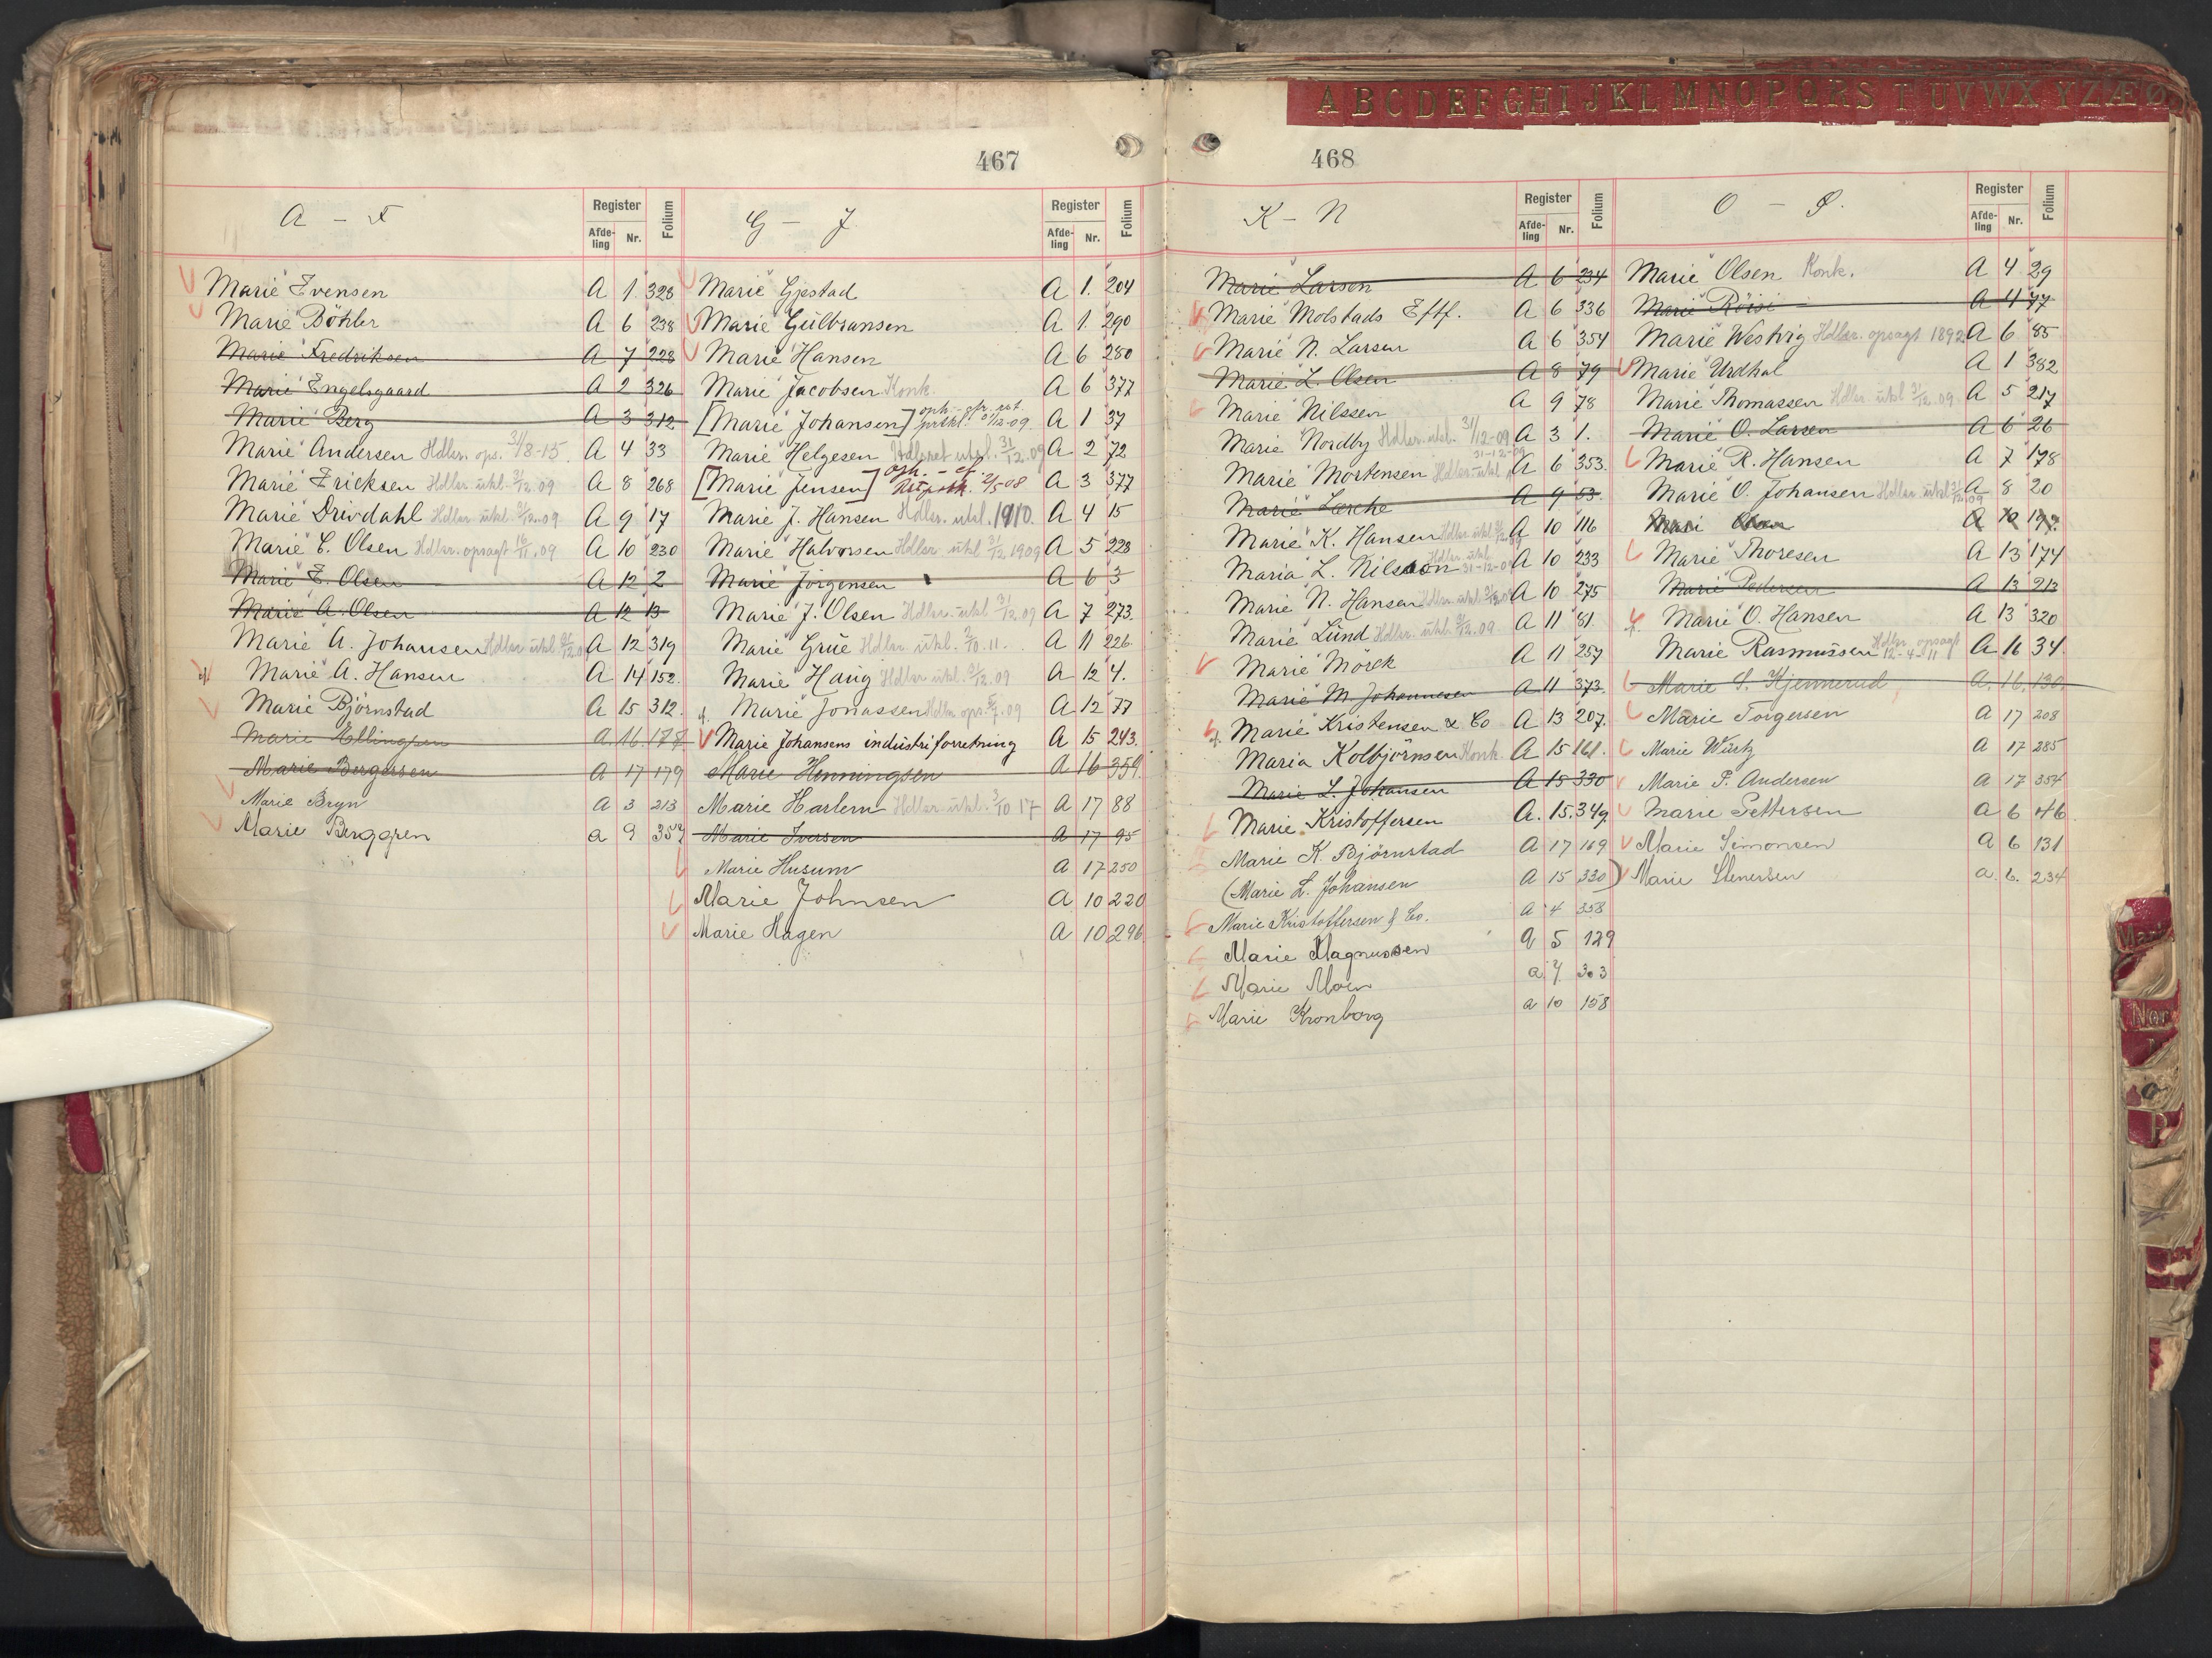 467
A - F
Register
Afde-
ling
Nr.
Folium
Marie Evensen A 1 328
Marie Böhler A 6 238
Marie Fredriksen A 7 228
Marie Engelsgaard A 2 326
Marie Berg A 3 312
Marie Andersen Hdlsr. ops. 31/8-15. A 4 33
Marie Ericksen Hdlsr. utsl. 31/12.09 A 8 268
Marie Drivdahl Hdlsr. utsl. 31/12.09 A 9 17
Marie C. Olsen Hdlsr. opsagt 16/11.09 A 10 230
Marie E. Olsen A 12 2
Marie A. Olsen A 12 13
Marie A. Johansen Hdlsr utsl 31/12.0 A 12 319
Marie A. Hansen A 14 152.
Marie Björnstad A 15 312.
Marie Ellingsen A. 16 177
Marie Bergersen A 17 179
Marie Bryn A 3 213
Marie Berggren a 9 357
G - J.
Register
Afde-
ling
Nr.
Folium
Marie Gjestad A 1. 204
Marie Gulbransen A 1. 290
Marie Hansen A 6 280
Marie Jacobsen Konk. A 6 377
[Marie Johansen] oph. - cfr. ret.
prtkl. 31/12-09. A 1 37
Marie Helgesen Hdlsret utsl. 31/12.09 A 2 72
[Marie Jensen] oph. - cf.
Retprtk. 2/5 08 A 3 377
Marie J. Hansen Hdlsr. utsl. 1910. A 4 15
Marie Halvorsen Hdlsr. utsl 31/12 1909 A 5 228
Marie Jörgensen A 6 3
Marie J. Olsen Hdlsr. utsl 31/12.09 A 7 273.
Marie Grue Hdlsr. utsl. 2/10.11. A 11 226.
Marie Haug Hdlsr utsl. 31/12.09 A 12 4.
cf. Marie Jonassen Hdlsr ops. 5/7.09 A 12 77
Marie Johansens industriforretning A 15 243.
Marie Henningsen A 16 359.
Marie Harlem Hdlsr. utsl. 3/10 17 A 17 88
Marie Iversen A 17 95
Marie Husum A 17 250
Marie Johnsen A 10 220
Marie Hagen A 10 296
A B C D E F G H I J K L M N O P Q R S T U V W X Y Z Æ Ø
468
K - N
Register
Afde-
ling
Nr.
Folium
Marie Larsen A 6 234
Marie Molstads Eftf. A 6 336
Marie N. Larsen A 6 354
Marie L. Olsen A 8 79
Marie Nilssen A 9 78
Marie Nordby Hdlsr. utsl. 31/12-09 A 3 1.
Marie Mortensen Hdlsr. utsl 31-12-09 A 6 353.
Marie Lerche A 9 53.
Marie K. Hansen Hdlsr utsl 31/12.09 A 10 116
Maria L. Nilsson Hdlsr. utsl 31-12-09 A 10 233
Marie N. Hansen Hdlsr utsl. 31/12.09 A 10 275
Marie Lund Hdlsr. utsl. 31/12.09. A 11 81.
Marie Mörck A 11 257
Marie M Johannesen A 11 373.
cf. Marie Kristensen & Co A 13 207.
Maria Kolbjörnsen Konk. A 15 161.
Marie L. Johansen A 15 330
Marie Kristoffersen A. 15. 349.
Marie K. Björnstad A 17 169
(Marie L. Johansen A 15 330)
Marie Kristoffersen & Co. A 4 358
Marie Magnussen A 5 129
Marie Moen a 7 303
Marie Kronborg a 10 158
O - Ø.
Register
Afde-
ling
Nr.
Folium
Marie Olsen Konk. A 4 29
Marie Röisi A 4 77
Marie Westvig Hdlsr. opsagt 1892 A 6 85
Marie Urdhal A 1 382
Marie Thomassen Hdlsr. utsl 31/12.09 A 5 217
Marie O. Larsen A 6 26
Marie R. Hansen A 7 178
Marie O. Johansen Hdlsr. utsl 31/12.09 A 8 20
Mari Olsen A 10 197
Marie Thoresen A 13 174
Marie Pedersen A 13 213
cf. Marie O. Hansen A 13 320
Marie Rasmussen Hdlsr. opsagt
12-4-11 A 16 34.
Marie S. Hjennerud A. 16. 130.
Marie Torgersen A 17 208
Marie Wirtz A 17 285
Marie P. Andersen A 17 354
Marie Pettersen A 6 46
Marie Simonsen A 6 131
Marie Stenersen a. 6. 234
Nor
O
P